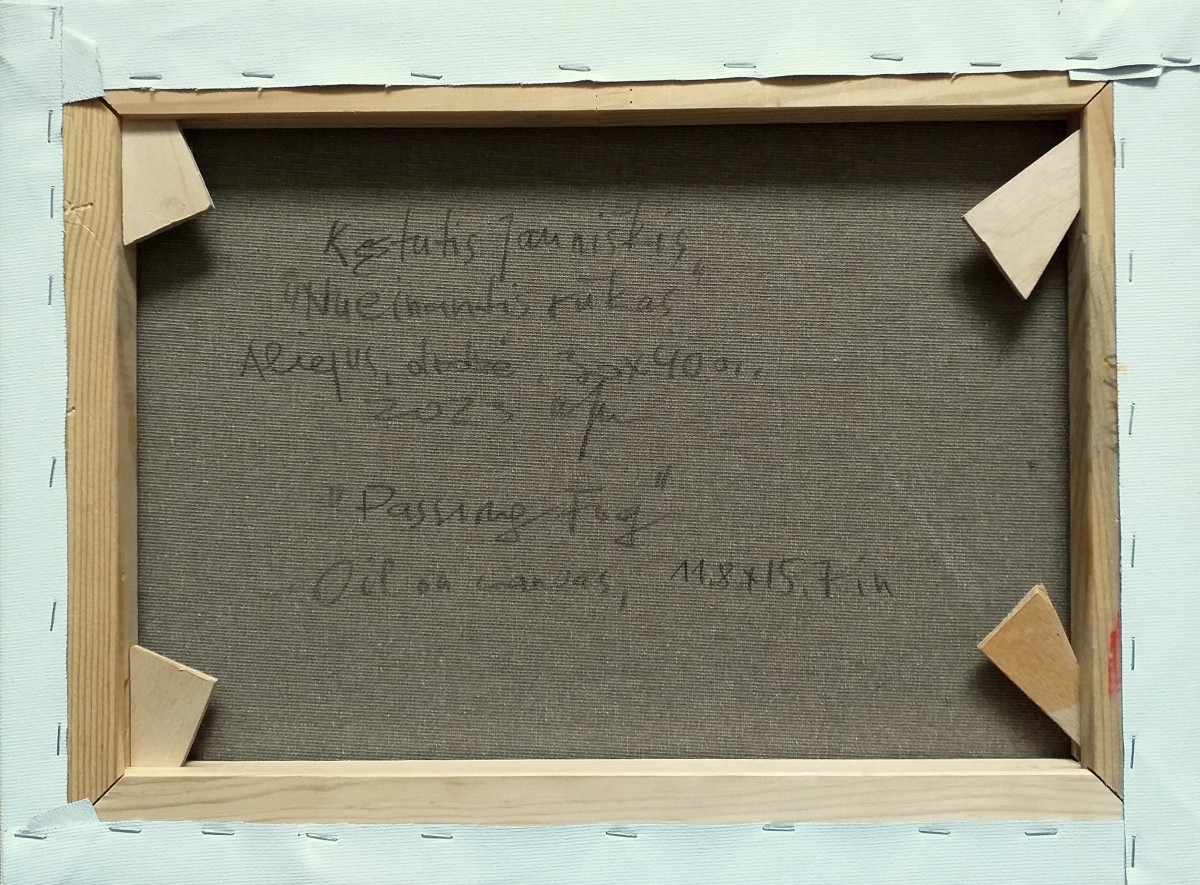 Kęstutis Jauniškis,
"Nueinantis rūkas"
Aliejus, drobė, 30x40cm.
2023
"Passing Fog"
Oil on canvas, 11.8x15.7in